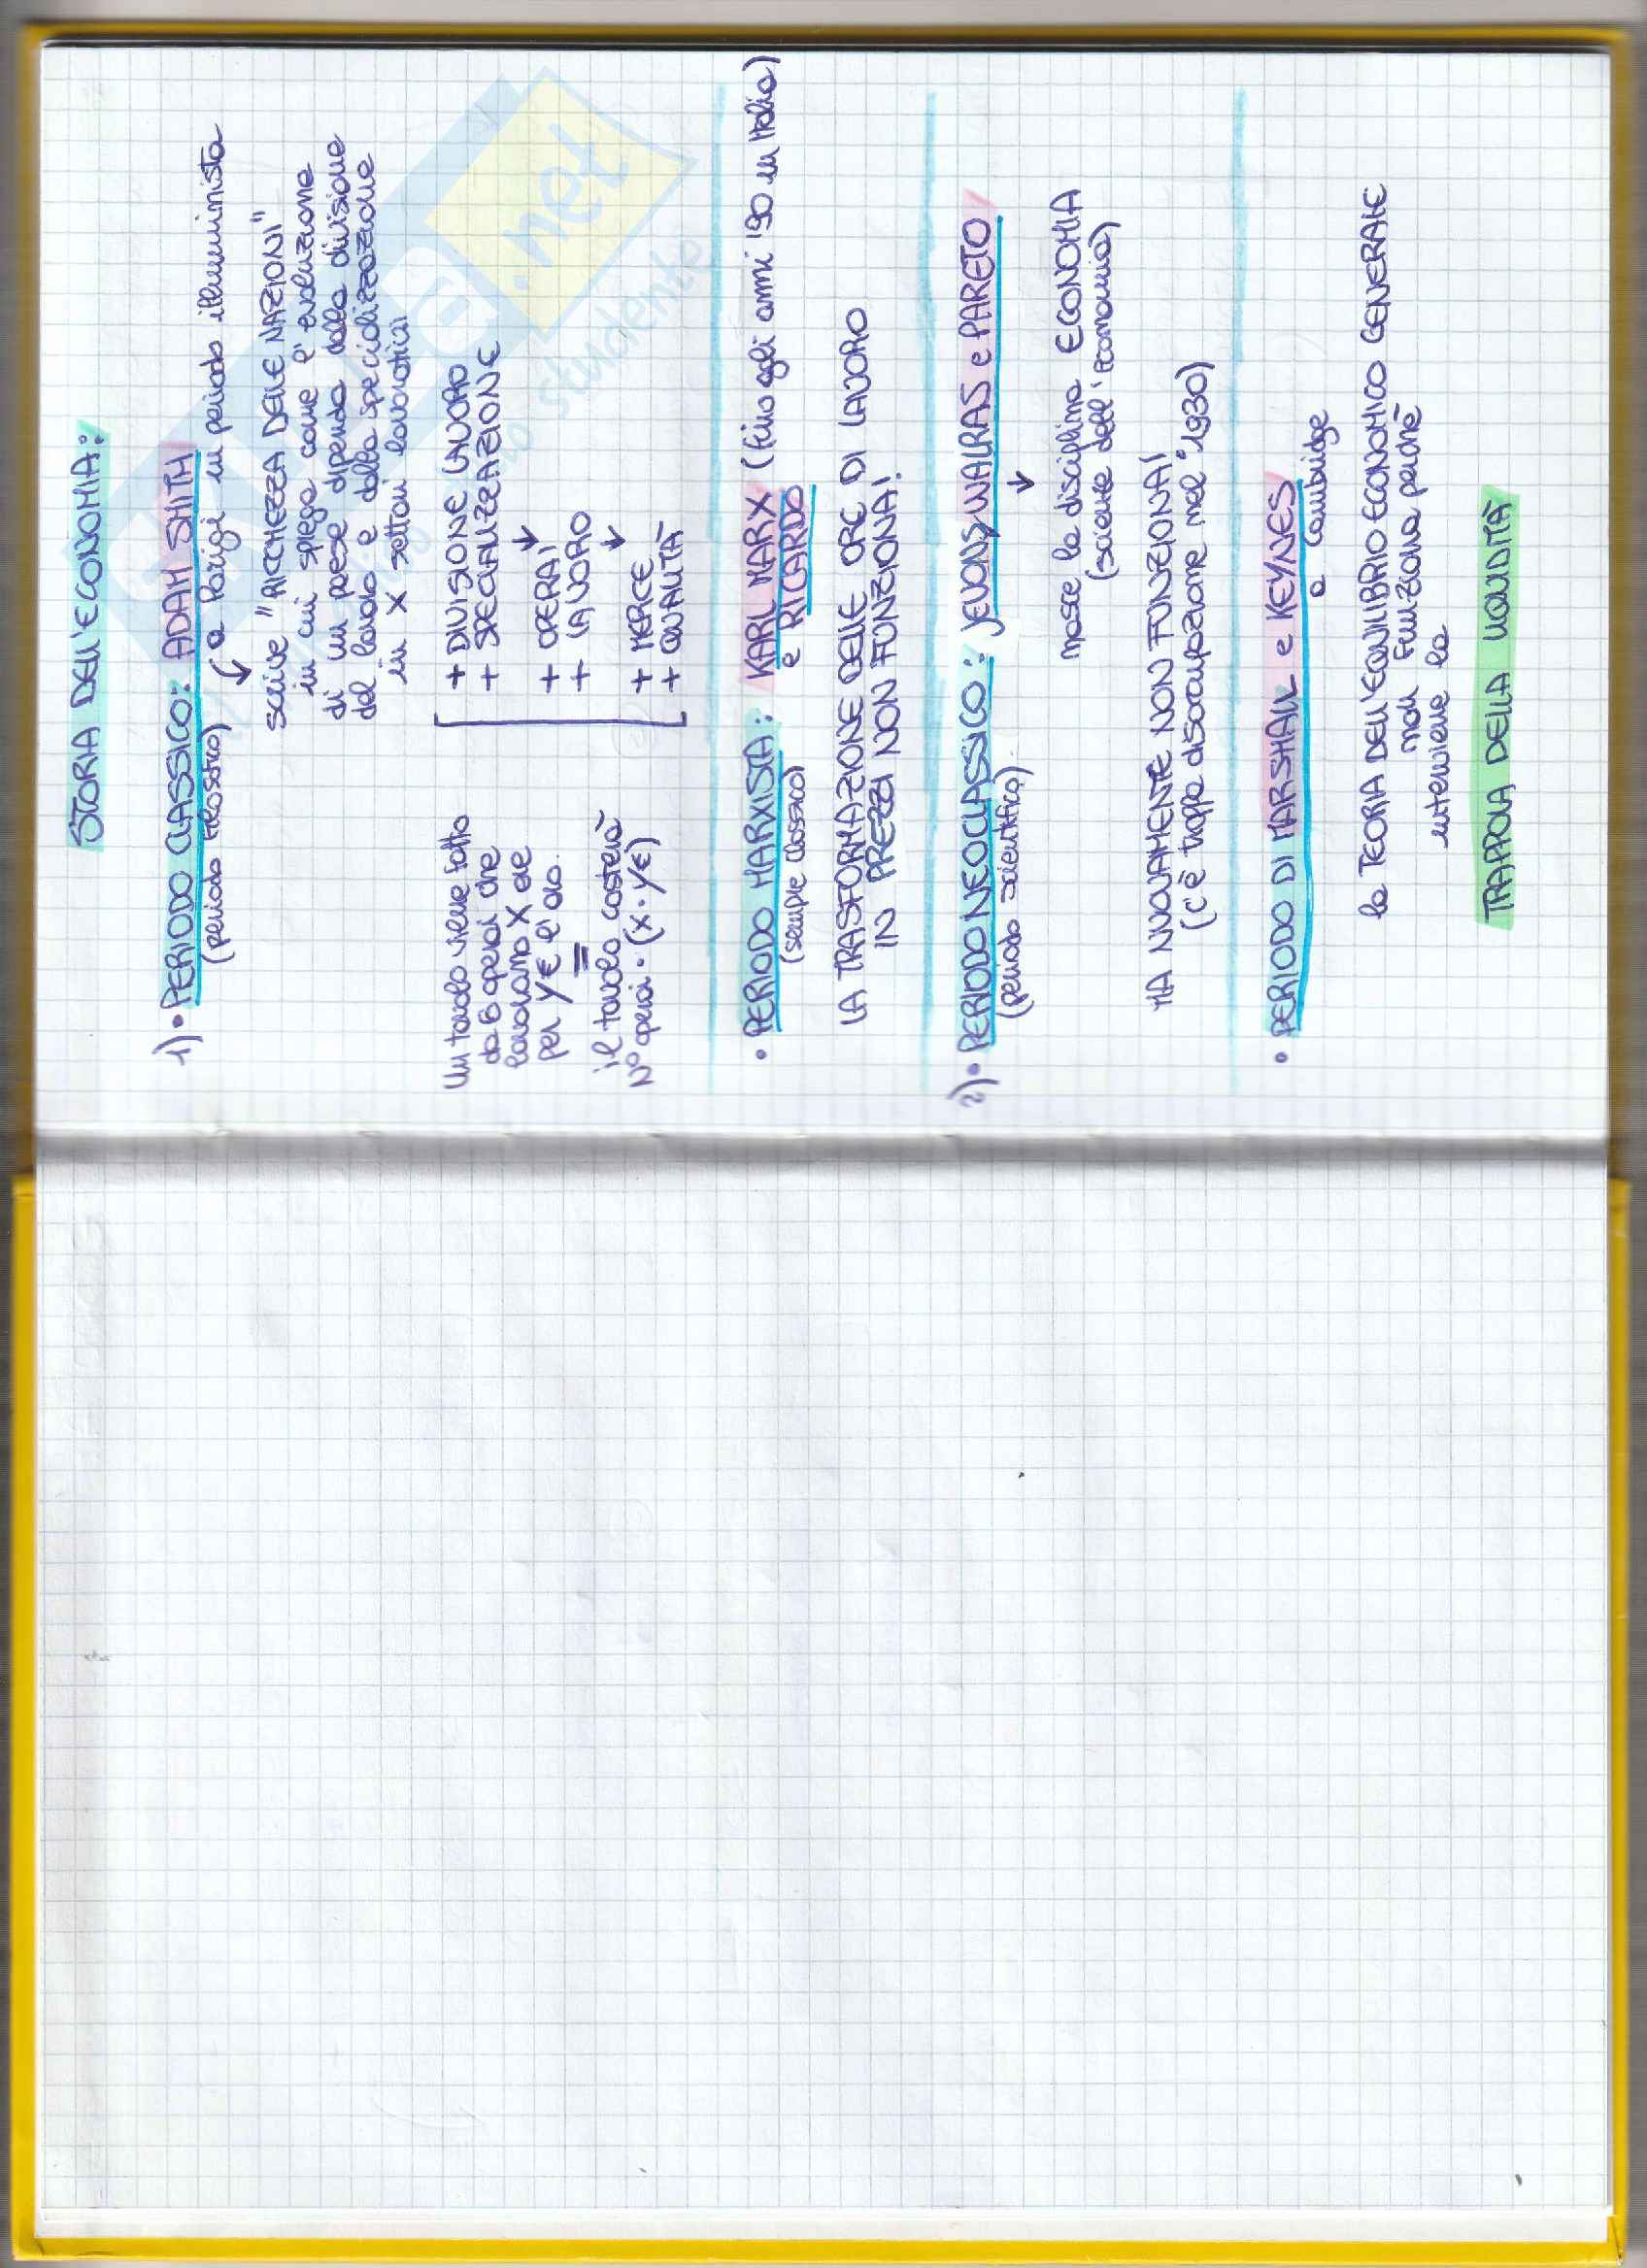 STORIA DELL'ECONOMIA:
1) • PERIODO CLASSICO: ADAM SMITH
(periodo filosofico) a Parigi in periodo illuminista
scrive "RICCHEZZA DELLE NAZIONI"
in cui spiega come l'evoluzione
di un paese dipenda dalla divisione
del lavoro e dalla specializzazione
in X settori lavorativi
Un tavolo viene fatto
da 6 operai che
lavorano X ore
per Y€ l'ora.
=
il tavolo costerà
N° operai · (X · Y€)
+ DIVISIONE LAVORO
+ SPECIALIZZAZIONE
↓
+ OPERAI
+ LAVORO
↓
+ MERCE
+ QUALITÀ
• PERIODO MARXISTA: KARL MARX (fino agli anni '90 in Italia)
(sempre classico) e RICARDO
LA TRASFORMAZIONE DELLE ORE DI LAVORO
IN PREZZI NON FUNZIONA!
2) • PERIODO NEOCLASSICO: JEVONS, WALRAS e PARETO
(periodo scientifico) ↓
nasce la disciplina ECONOMIA
(scienze dell'economia)
MA NUOVAMENTE NON FUNZIONA!
(c'è troppa disoccupazione nel "1930)
• PERIODO DI MARSHALL e KEYNES
a Cambridge
la TEORIA DELL'EQUILIBRIO ECONOMICO GENERALE
non funziona perchè
interviene la
TRAPPOLA DELLA LIQUIDITÀ
.net
studente